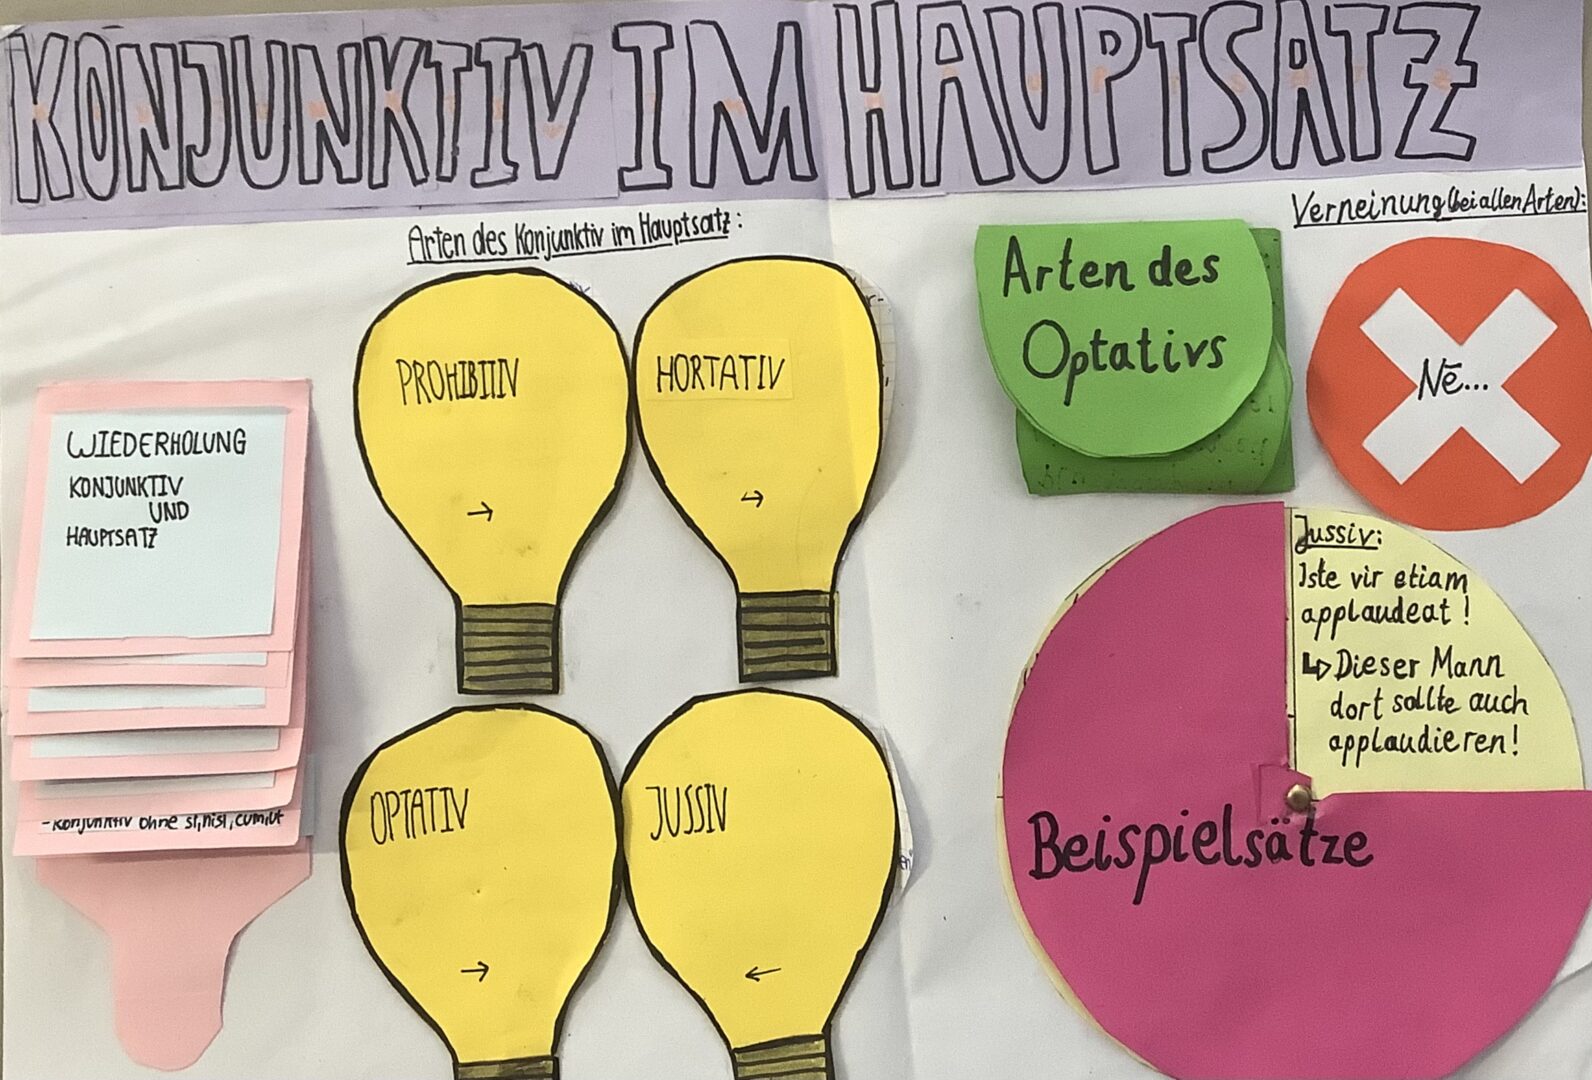 KONJUNKTIV IM HAUPTSATZ
Arten des Konjunktiv im Hauptsatz:
Verneinung (bei allen Arten):
WIEDERHOLUNG
KONJUNKTIV
UND
HAUPTSATZ
- Konjunktiv ohne si, nisi, cum, ut
PROHIBITIV
→
HORTATIV
→
OPTATIV
→
JUSSIV
←
Arten des
Optativs
Nē...
Jussiv:
Iste vir etiam
applaudeat!
↳ Dieser Mann
dort sollte auch
applaudieren!
Beispielsätze